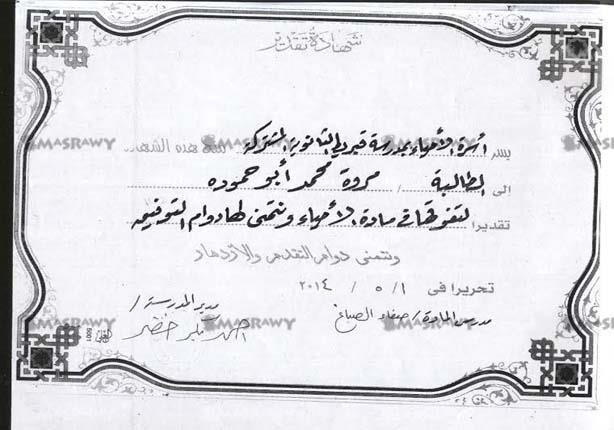 شهادة تقدير
يسر أسرة الأحياء بمدرسة الثانوية المشتركة هذه الشهادة
الى الطالبة / مروة محمد أبو حموده
تقديرا لتفوقها في مادة الأحياء ونتمنى لها دوام التوفيق
ونتمنى دوام التقدم والازدهار
تحريرا فى ١ / ٥ / ٢٠١٤
مدرس المادة / صفاء الصباغ
مدير المدرسة /
MASRAWY
MASRAWY
MASRAWY
MASRAWY
MASRAWY
MASRAWY